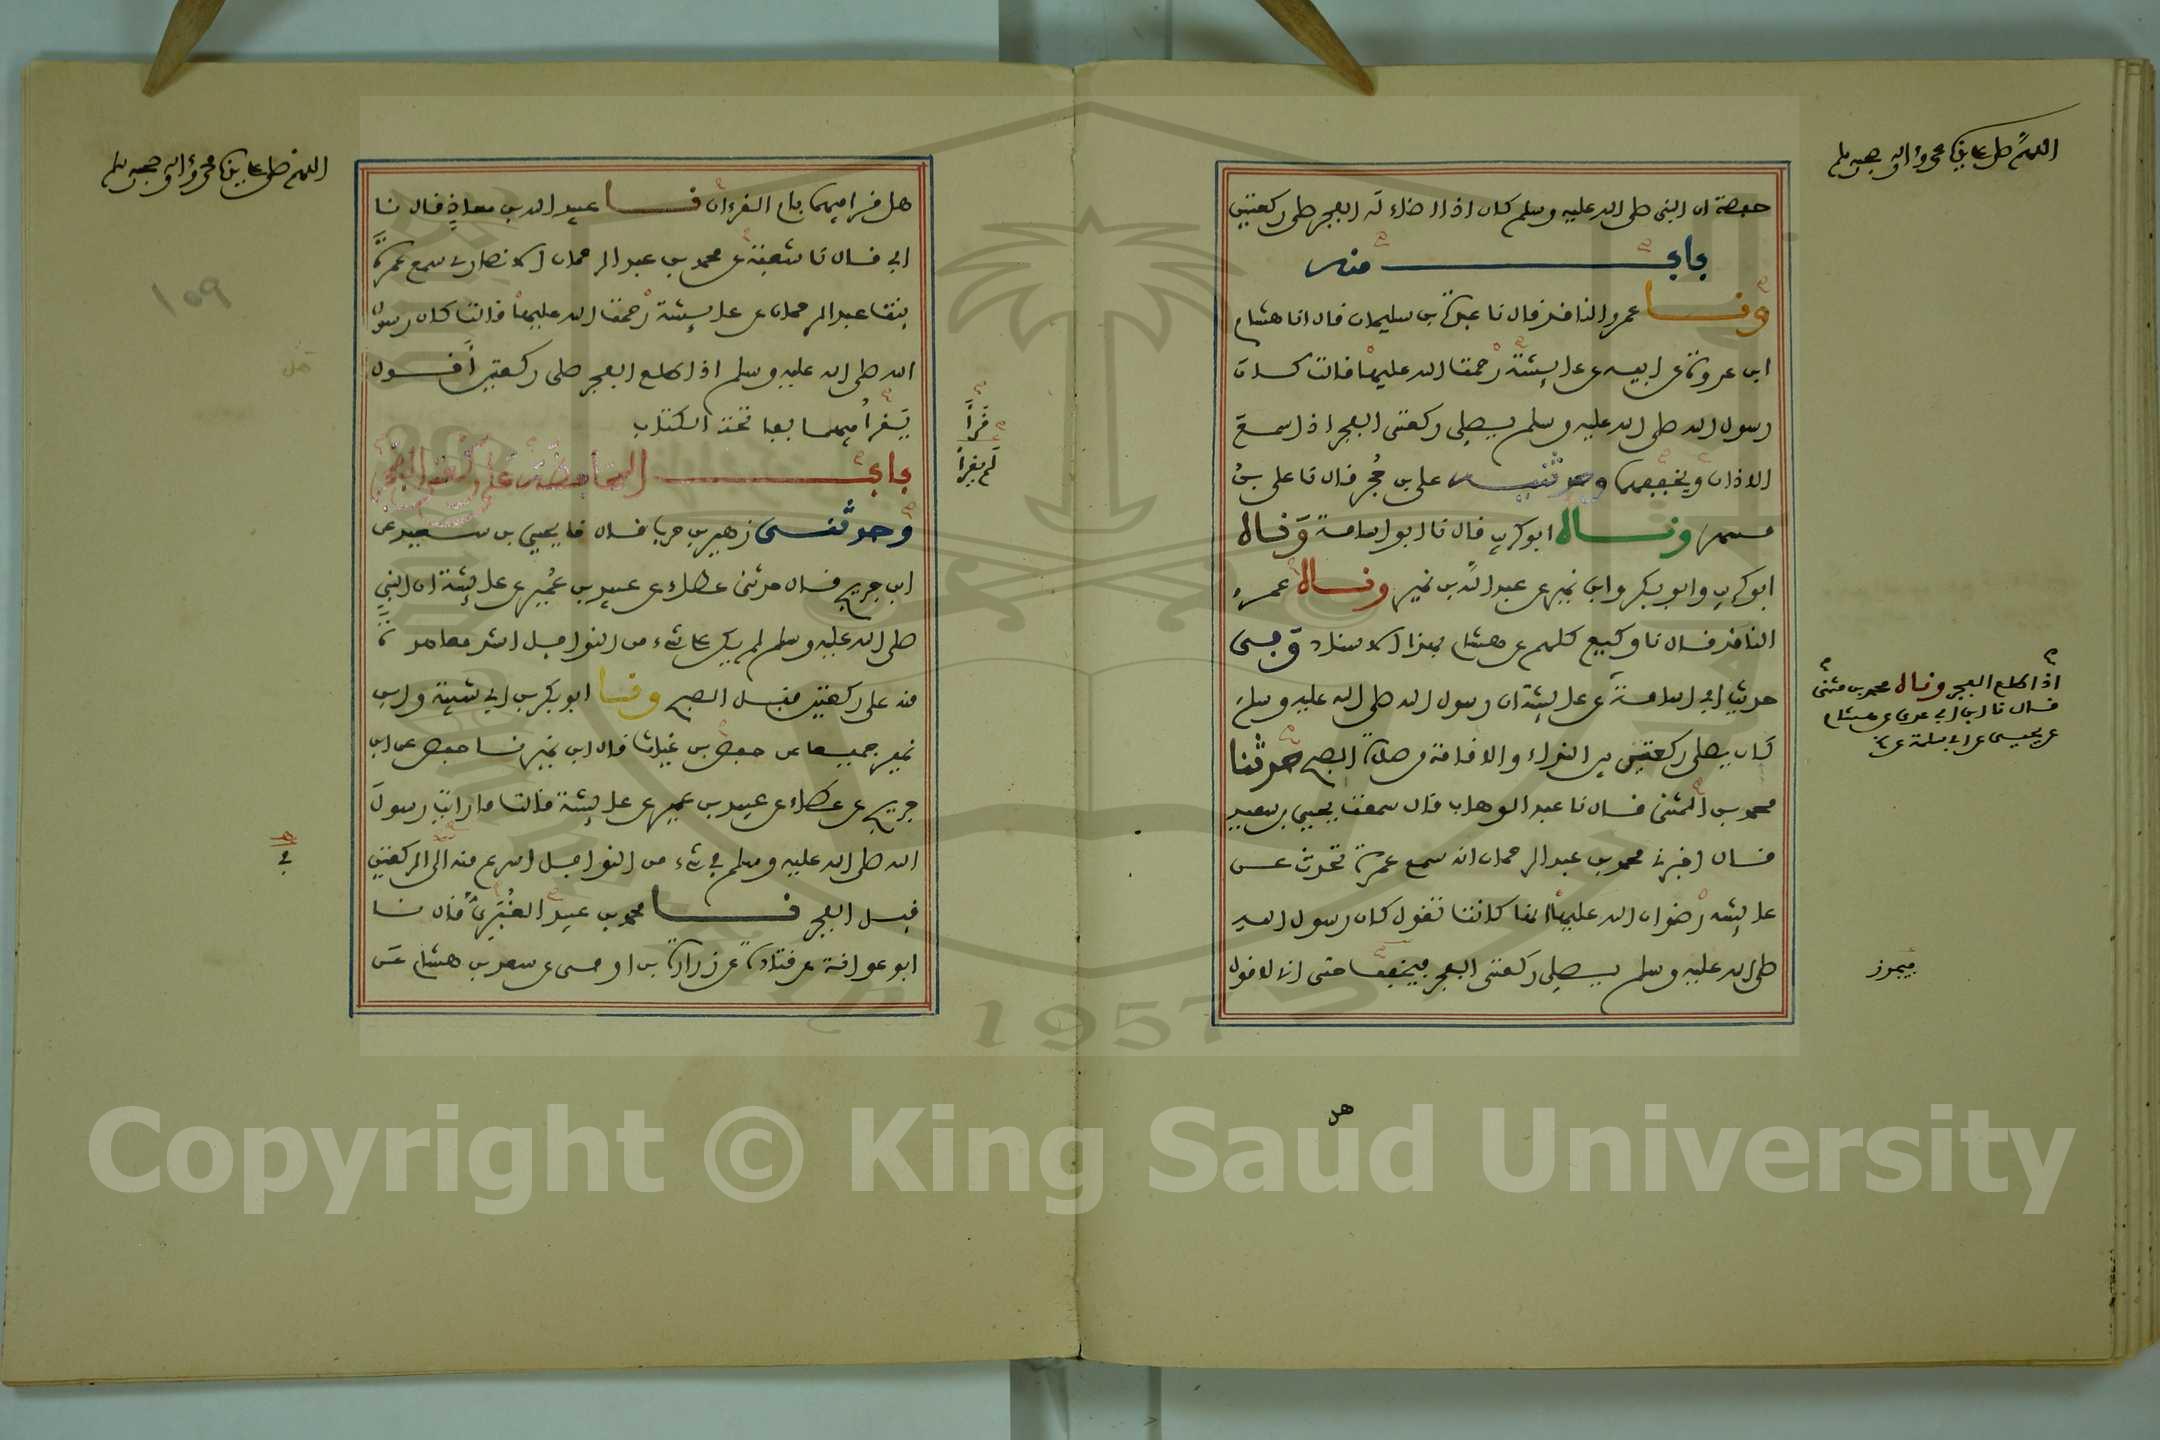 اللهم صل على سيدنا محمد وءاله وصحبه وسلم
حفصة ان النبي صلى الله عليه وسلم كان اذا اضاء له الفجر صلى ركعتين
باب منه
ونا عمرو الناقد قال نا عبدة بن سليمان قال انا هشام
ابن عروة عن ابيه عن عايشة رحمة الله عليها قالت كان
رسول الله صلى الله عليه وسلم يصلي ركعتي الفجر اذا سمع
الاذان ويخففهما وحدثنيه علي بن حُجر قال نا علي بنُ
مسهر وناه ابو كريب قال نا ابو اسامة وَناه
ابو كريب وابو بكر وابن نمير عن عبد الله بن نمير وناه عمرو
الناقد قال نا وكيع كلهم عن هشام بهذا الاسناد وَفي
حديث ابي اسامة عن عايشة ان رسول الله صلى الله عليه وسلم
كان يصلي ركعتين بين النداء والاقامة من صلاة الصبح حدثنا
محمد بن المثنى قال نا عبد الوهاب قال سمعت يحيى بن سعيد
قال اخبرني محمد بن عبد الرحمان انه سمع عمرة تحدث عن
عايشة رضوان الله عليها انها كانت تقول كان رسول الله
صلى الله عليه وسلم يصلي ركعتي الفجر فيخففها حتى اني لاقول
اذا طلع الفجر وناه محمد بن مثنى
قال نا ابن ابي عدي عن هشام
عن يحيى عن ابي سلمة عن
فيجوز
هل
اللهم صل على سيدنا محمد وءاله وصحبه وسلم
١٥٩
هل قرا فيهما بام القرءان نا عبيد الله بن معاذٍ قال نا
ابي قال نا شعبة عن محمد بن عبد الرحمان الانصاري سمع عمرةَ
بنت عبد الرحمان عن عايشة رحمة الله عليها قالت كان رسول
الله صلى الله عليه وسلم اذا طلع الفجر صلى ركعتين أقول
يَقرأ فيهما بفاتحة الكتاب
باب المحافظة على ركعتي الفجر
وحدثني زهير بن حرب قال نا يحيى بن سعيد عن
ابن جريج قال حدثني عطاء عن عبيد بن عُمير عن عايشة ان النبي
صلى الله عليه وسلم لم يكن على شيء من النوافل اشد معاهدةً
منه على ركعتين قبل الصبح ونا ابو بكر بن ابي شيبة وابن
نمير جميعا عن حفص بن غياث قال ابن نمير نا حفص عن ابن
جريج عن عطاء عن عبيد بن عمير عن عايشة قالت ما رايت رسول
الله صلى الله عليه وسلم في شيء من النوافل اسرع منه الى الركعتين
قبل الفجر نا محمد بن عبيد الغُبَريُّ قال نا
ابو عوانة عن قتادة عن زرارة بن اوفى عن سعد بن هشام عن
قَرَأَ
لم يقرأ
في
Copyright © King Saud University
1957